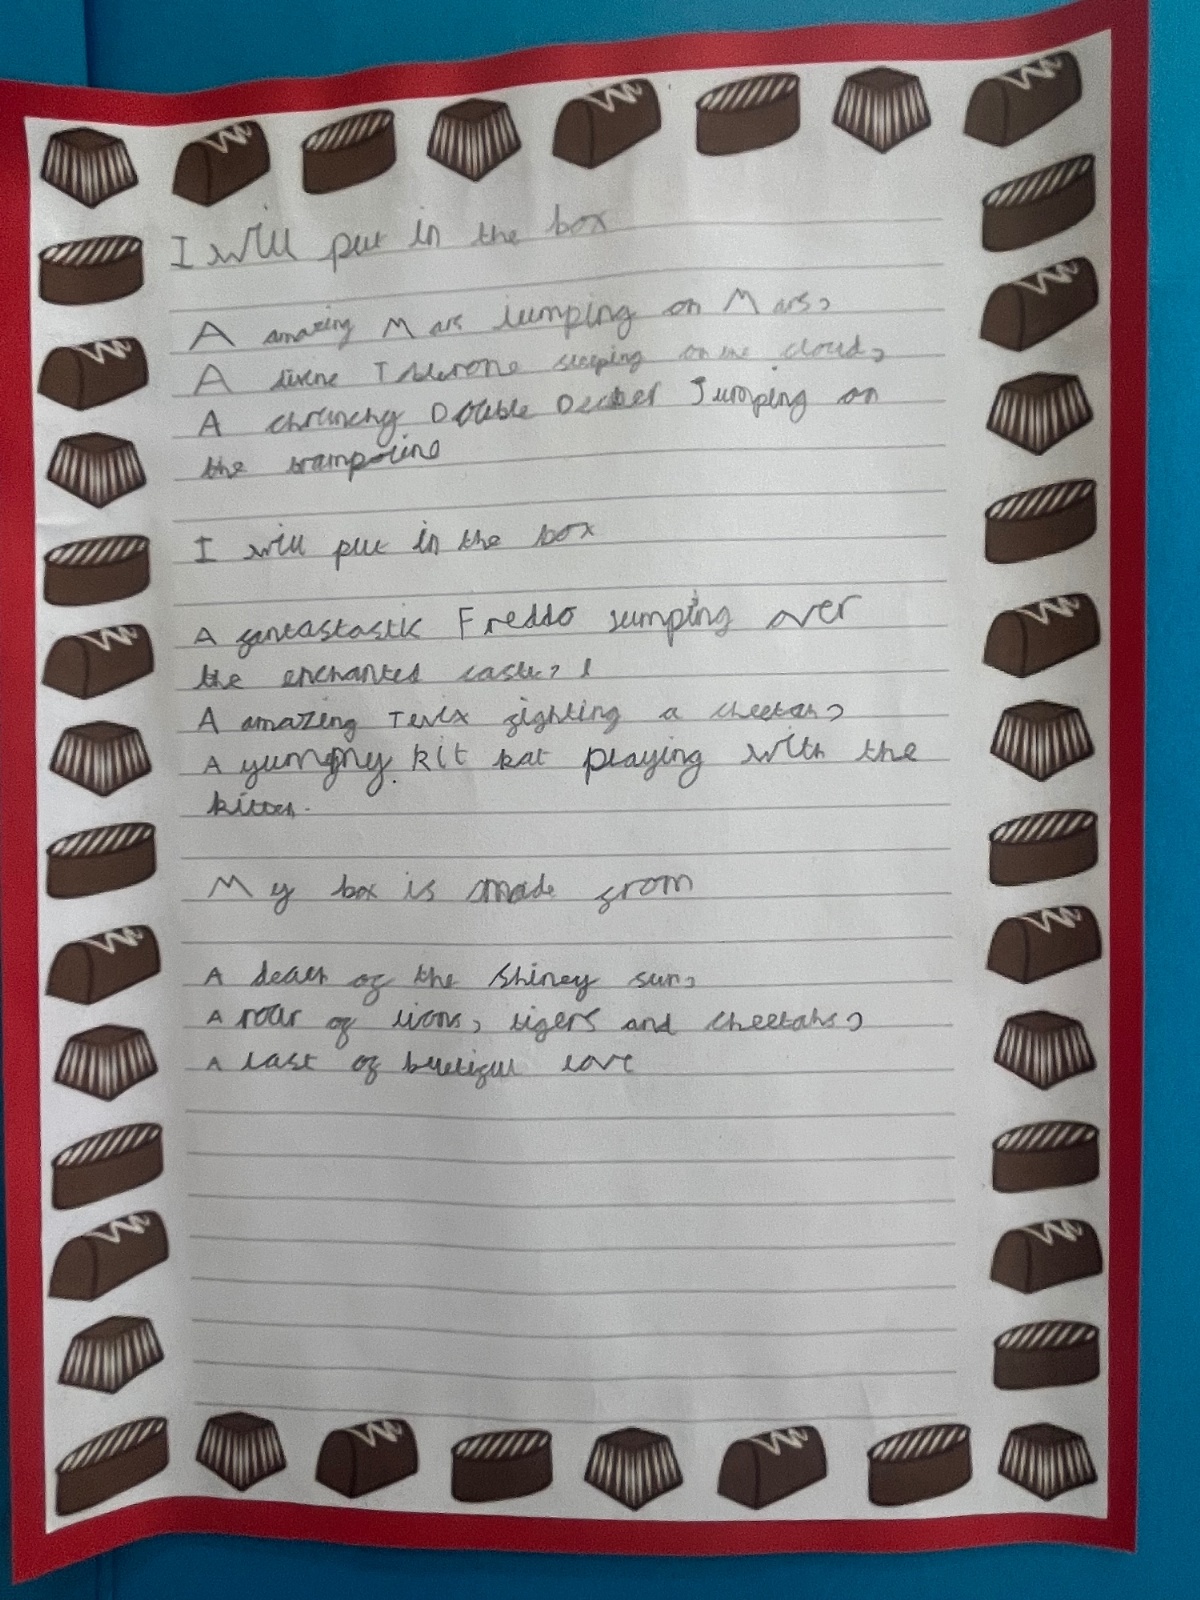 I will put in the box
A amazing Mars jumping on Mars,
A divine Toblerone sleeping on the cloud,
A chrunchy Double Decker Jumping on
the trampoline
I will put in the box
A fantastastic Freddo jumping over
the enchanted castle,
A amazing Twix fighting a cheetah,
A yummy kit kat playing with the
kitten.
My box is made from
A of the Shiney sun,
A roar of lions, tigers and cheetahs,
A last of love